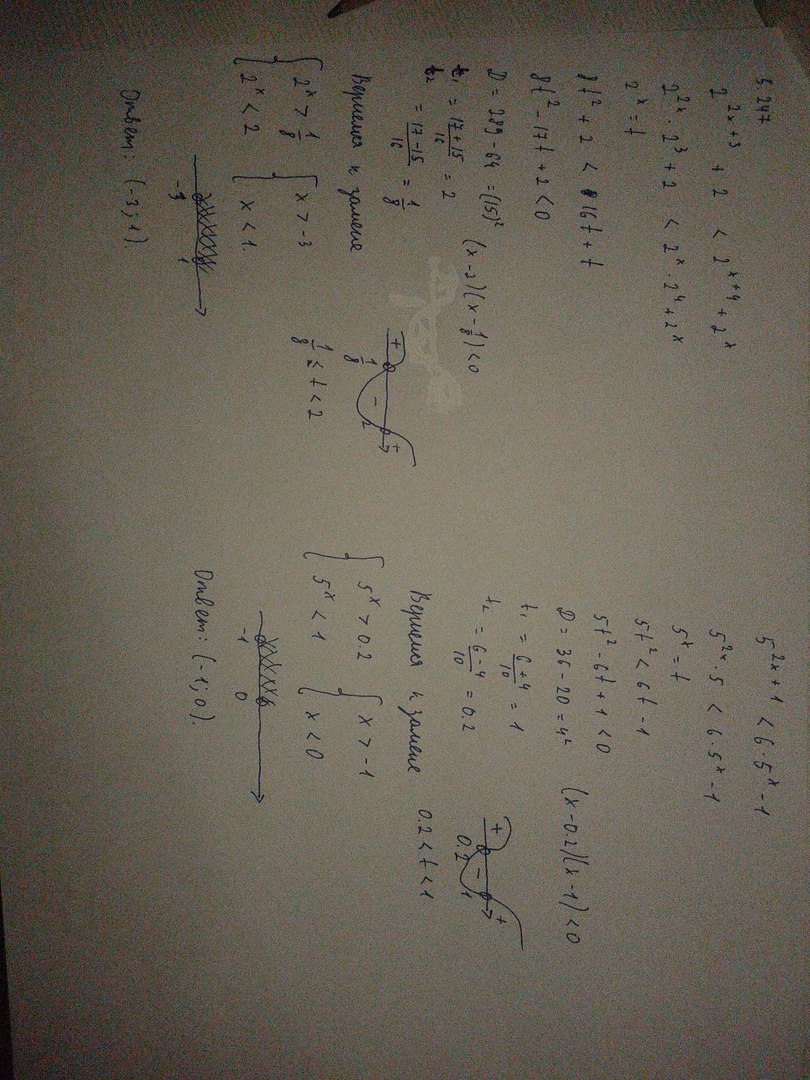 5.247
2^{2x+3} + 2 < 2^{x+4} + 2^x
2^{2x} · 2^3 + 2 < 2^x · 2^4 + 2^x
2^x = t
8t^2 + 2 < 16t + t
8t^2 - 17t + 2 < 0
D = 289 - 64 = (15)^2
(x - 2)(x - 1/8) < 0
t_1 = (17 + 15)/16 = 2
t_2 = (17 - 15)/16 = 1/8
+ - +
1/8 2
1/8 < t < 2
Вернемся к замене
{ 2^x > 1/8 { x > -3
{ 2^x < 2 { x < 1.
-3 1
Ответ: (-3; 1)
5^{2x+1} < 6 · 5^x - 1
5^{2x} · 5 < 6 · 5^x - 1
5^x = t
5t^2 < 6t - 1
5t^2 - 6t + 1 < 0
D = 36 - 20 = 4^2
(x - 0.2)(x - 1) < 0
t_1 = (6 + 4)/10 = 1
t_2 = (6 - 4)/10 = 0.2
+ - +
0.2 1
0.2 < t < 1
Вернемся к замене
{ 5^x > 0.2 { x > -1
{ 5^x < 1 { x < 0
-1 0
Ответ: (-1; 0).